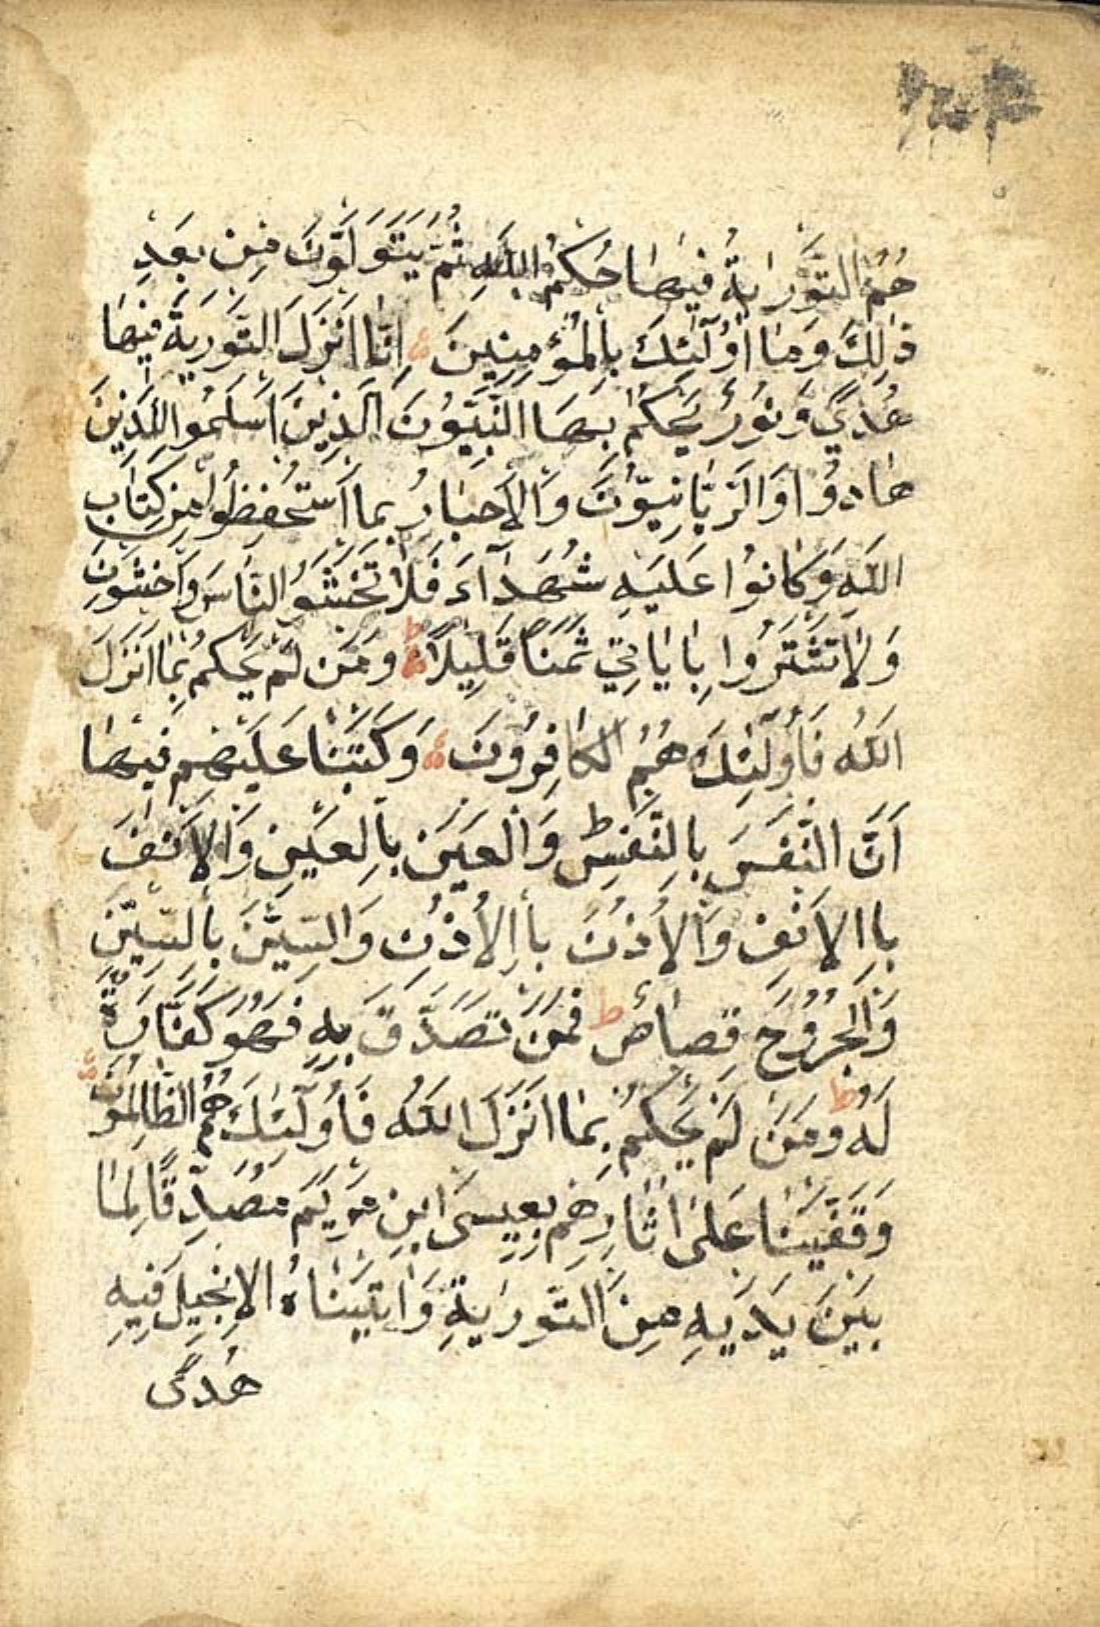 هُمُ التَّوْرٰيةُ فِيهَا حُكْمُ اللَّهِ ثُمَّ يَتَوَلَوَّنَ مِنْ بَعْدِ
ذٰلِكَ وَمَا اُولٰٓئِكَ بِالْمُؤْمِنِينَ اِنَّا اَنْزَلَ التَّوْرٰيةَ فِيهَا
هُدًي وَنُورٌ يَحْكُمُ بِهَا النَّبِيُّونَ الَّذِينَ اَسْلَمُوا لِلَّذِينَ
هَادُوا وَالرَّبَّانِيُّونَ وَالْاَحْبَارُ بِمَا اسْتُحْفِظُوا مِنْ كِتَابِ
اللَّهِ وَكَانُوا عَلَيْهِ شُهَدَآءَ فَلَا تَخْشَوُا النَّاسَ وَاخْشَوْنِ
وَلَا تَشْتَرُوا بِاٰيَاتِي ثَمَنًا قَلِيلًا ط وَمَنْ لَمْ يَحْكُمْ بِمَا اَنْزَلَ
اللَّهُ فَاُولٰٓئِكَ هُمُ الْكَافِرُونَ وَكَتَبْنَا عَلَيْهِمْ فِيهَا
اَنَّ النَّفْسَ بِالنَّفْسِ وَالْعَيْنَ بِالْعَيْنِ وَالْاَنْفَ
بِاالْاَنْفِ وَالْاُذُنَ بِاالْاُذُنِ وَالسِّنَّ بِالسِّنِّ
وَالْجُرُوحَ قِصَاصٌ ط فَمَنْ تَصَدَّقَ بِهِ فَهُوَ كَفَّارَةٌ
لَهُ ط وَمَنْ لَمْ يَحْكُمْ بِمَا اَنْزَلَ اللَّهُ فَاُولٰٓئِكَ هُمُ الظَّالِمُونَ
وَقَفَّيْنَا عَلٰى اٰثَارِهِمْ بِعِيسَى ابْنِ مَرْيَمَ مُصَدِّقًا لِمَا
بَيْنَ يَدَيْهِ مِنَ التَّوْرٰيةِ وَاٰتَيْنَاهُ الْاِنْجِيلَ فِيهِ
هُدًى